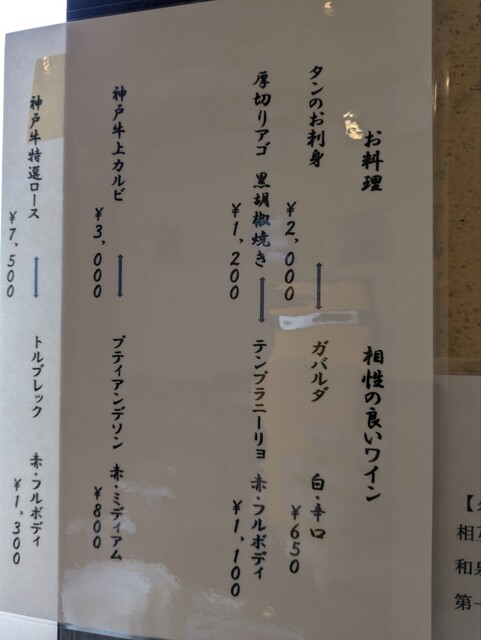 お料理
相性の良いワイン
タンのお刺身
¥2,000
ガバルダ 白・辛口
¥650
厚切りアゴ 黒胡椒焼き
¥1,200
テンプラニーリョ 赤・フルボディ
¥1,100
神戸牛上カルビ
¥3,000
プティアンデソン 赤・ミディアム
¥800
神戸牛特選ロース
¥7,500
トルブレック 赤・フルボディ
¥1,300